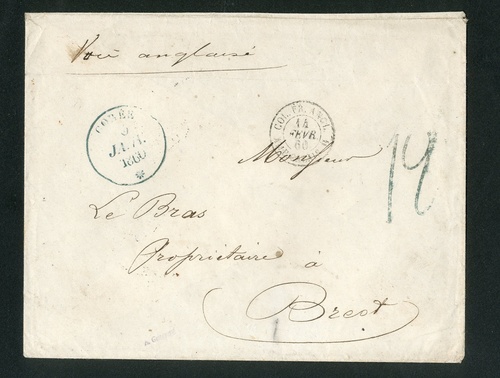 Voie anglaise
GORÉE
9
JANV.
1860
COL. FR. ANGL.
14
FEVR.
60
Monsieur
Le Bras
Propriétaire à
Brest